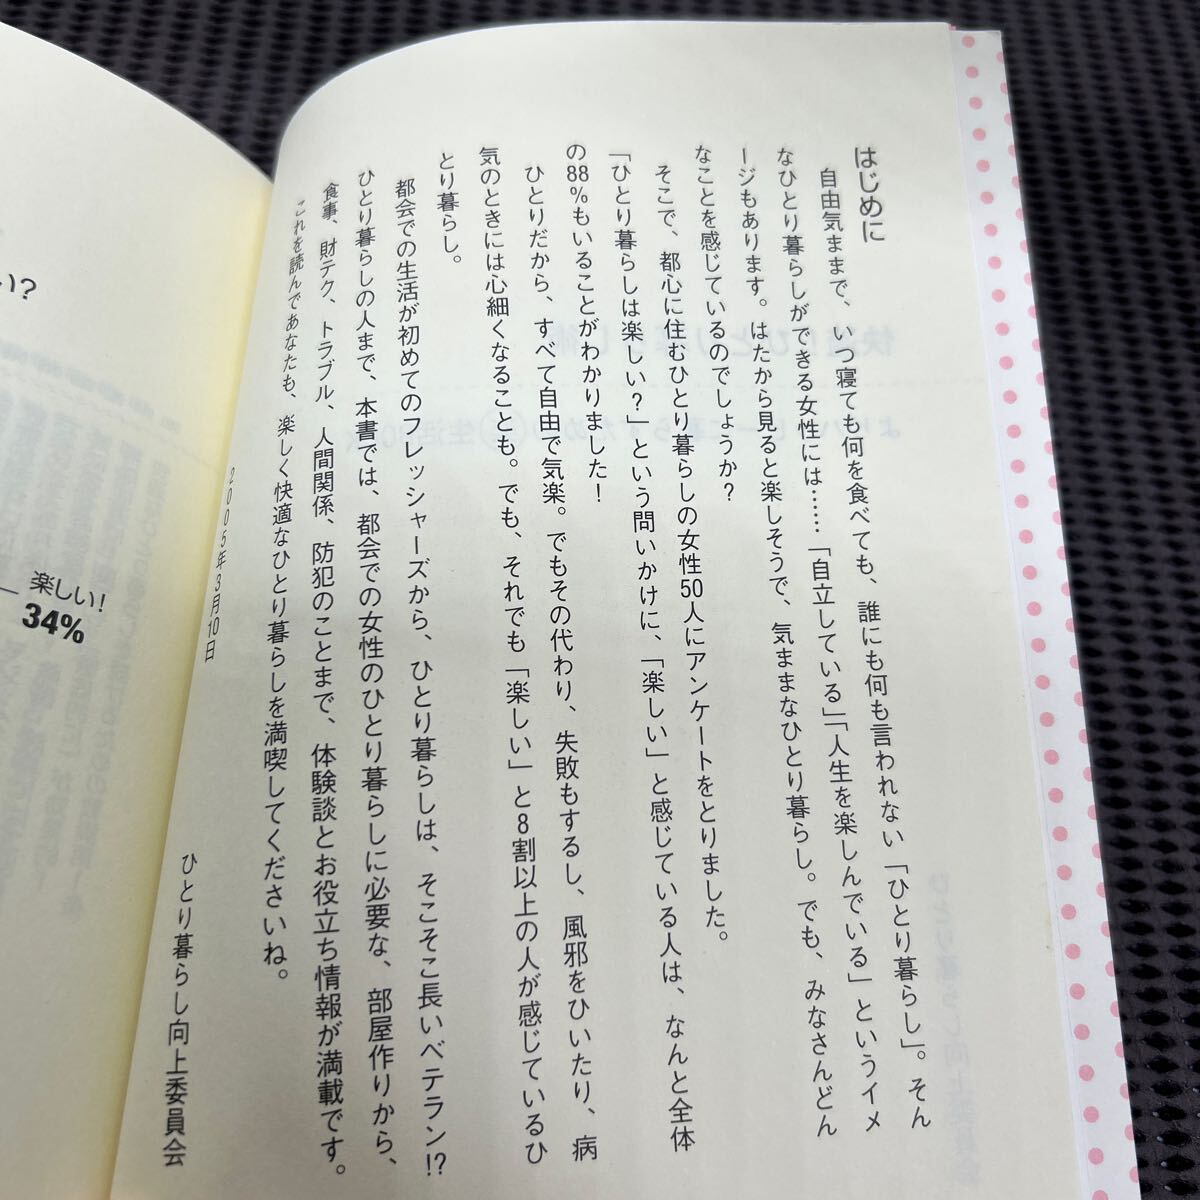 はじめに
自由気ままで、いつ寝ても何を食べても、誰にも何も言われない「ひとり暮らし」。そん
なひとり暮らしができる女性には……「自立している」「人生を楽しんでいる」というイメ
ージもあります。はたから見ると楽しそうで、気ままなひとり暮らし。でも、みなさんどん
なことを感じているのでしょうか?
そこで、都心に住むひとり暮らしの女性50人にアンケートをとりました。
「ひとり暮らしは楽しい?」という問いかけに、「楽しい」と感じている人は、なんと全体
の88%もいることがわかりました!
ひとりだから、すべて自由で気楽。でもその代わり、失敗もするし、風邪をひいたり、病
気のときには心細くなることも。でも、それでも「楽しい」と8割以上の人が感じているひ
とり暮らし。
都会での生活が初めてのフレッシャーズから、ひとり暮らしは、そこそこ長いベテラン!?
ひとり暮らしの人まで、本書では、都会での女性のひとり暮らしに必要な、部屋作りから、
食事、財テク、トラブル、人間関係、防犯のことまで、体験談とお役立ち情報が満載です。
これを読んであなたも、楽しく快適なひとり暮らしを満喫してくださいね。
2005年3月10日
ひとり暮らし向上委員会
い?
楽しい!
34%